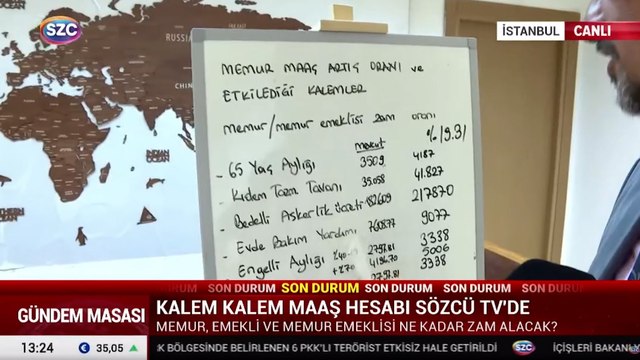 SZC
İSTANBUL CANLI
RUSSIA
MEMUR MAAŞ ARTIŞ ORANI ve
ETKİLEDİĞİ KALEMLER
memur/memur emeklisi zam oranı
%19.31
mevcut
- 65 Yaş Aylığı 3509 4187
- Kıdem Tazm Tavanı 35.058 41.827
- Bedelli Askerlik Ücreti 182609 217870
- Evde Bakım Yardımı 7608.77 9077
- Engelli Aylığı %40 2797.81 3338
+%70 4196.70 5006
2797.81 3338
SON DURUM SON DURUM SON DURUM SON DURUM SON DURUM
GÜNDEM MASASI
KALEM KALEM MAAŞ HESABI SÖZCÜ TV'DE
MEMUR, EMEKLİ VE MEMUR EMEKLİSİ NE KADAR ZAM ALACAK?
13:24 € 35,05 K BÖLGESİNDE BELİRLENEN 6 PKK'LI TERÖRİST ETKİSİZ HALE GETİRİLDİ SZC İÇİŞLERİ BAKANLI